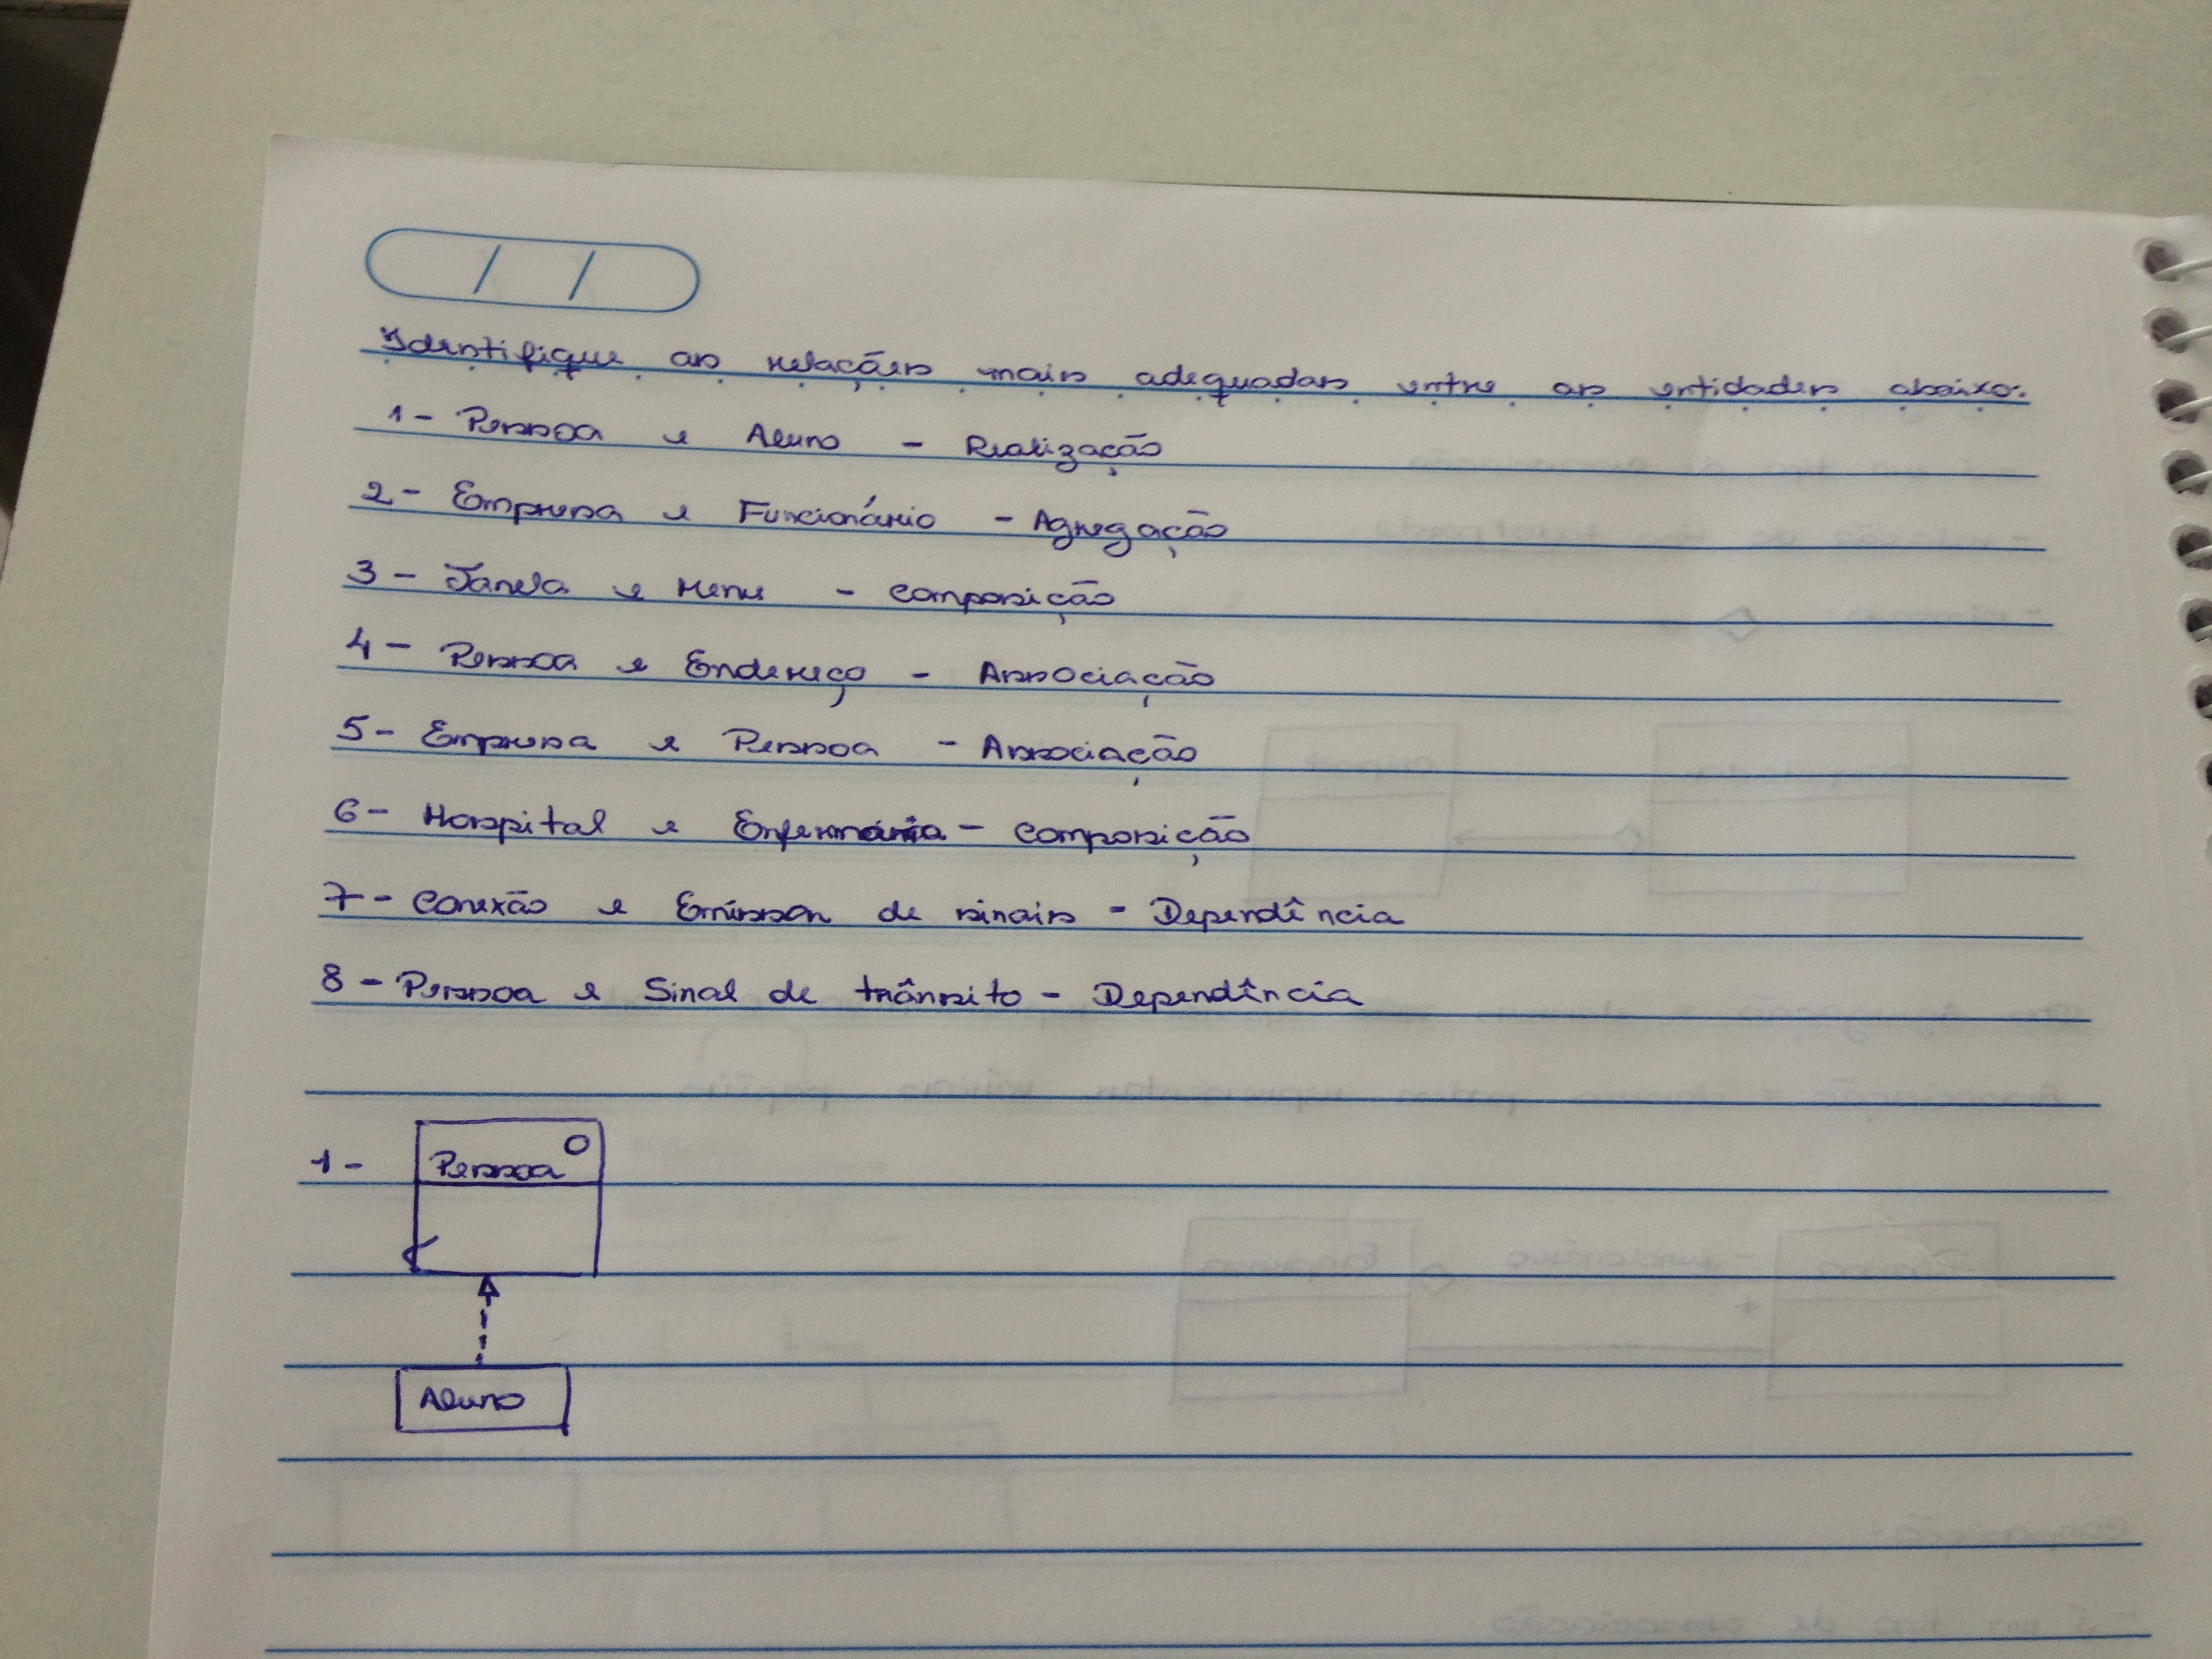 Identifique as relações mais adequadas entre as entidades abaixo:
1 - Pessoa e Aluno - Realização
2 - Empresa e Funcionário - Agregação
3 - Janela e Menu - Composição
4 - Pessoa e Endereço - Associação
5 - Empresa e Pessoa - Associação
6 - Hospital e Enfermaria - Composição
7 - Conexão e Emissor de sinais - Dependência
8 - Pessoa e Sinal de trânsito - Dependência
1 - Pessoa
Aluno